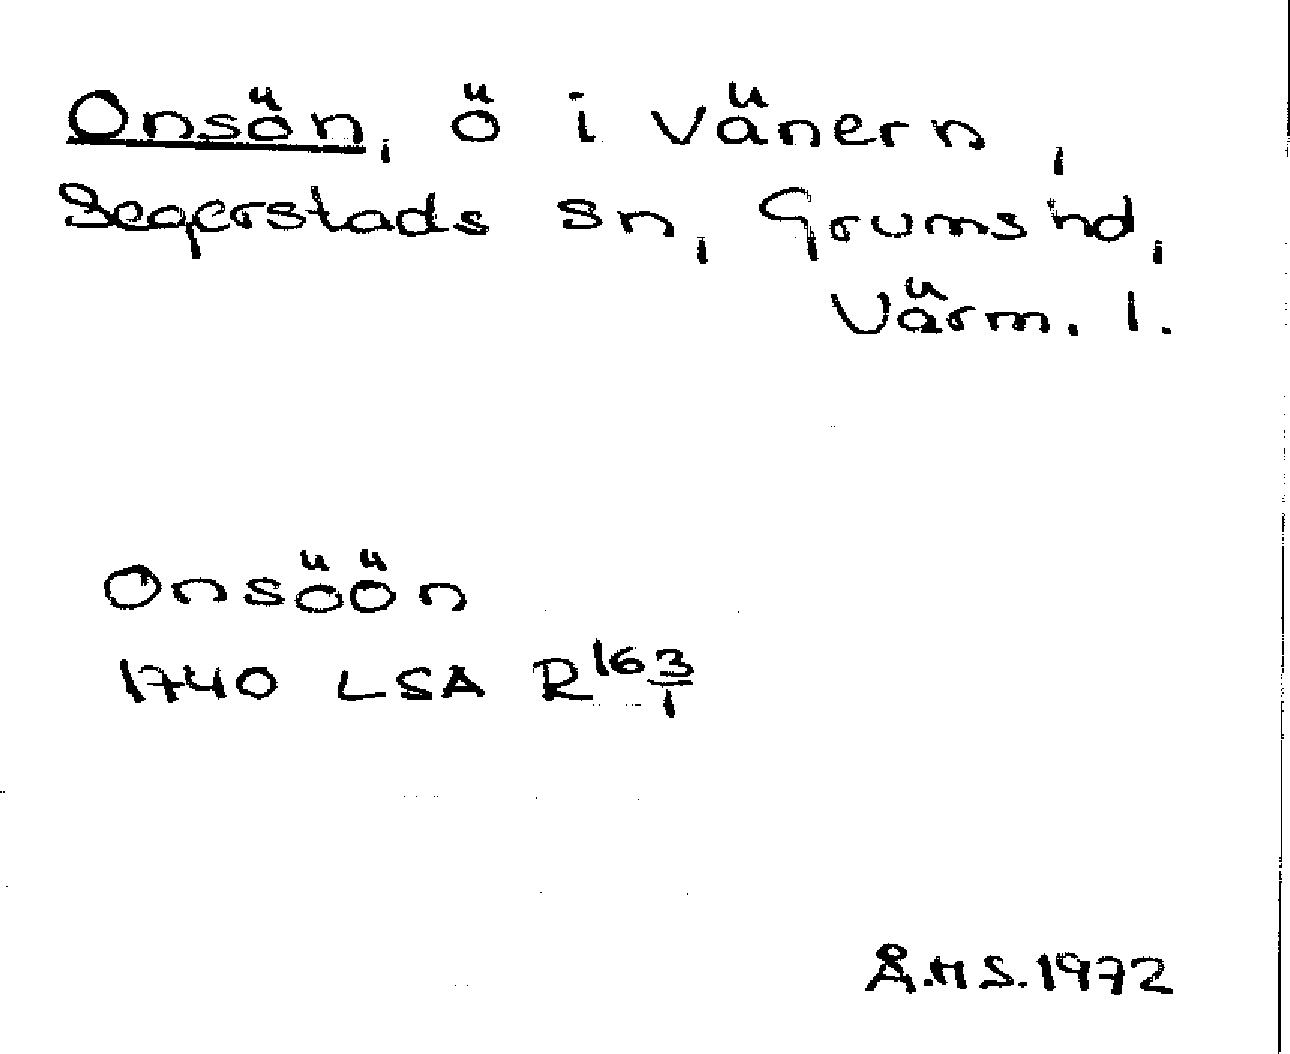 Onsön, ö i Vänern,
Segerstads sn, Grums hd,
Värm. l.
Onsöön
1740 LSA R 163/1
Å.H S. 1972